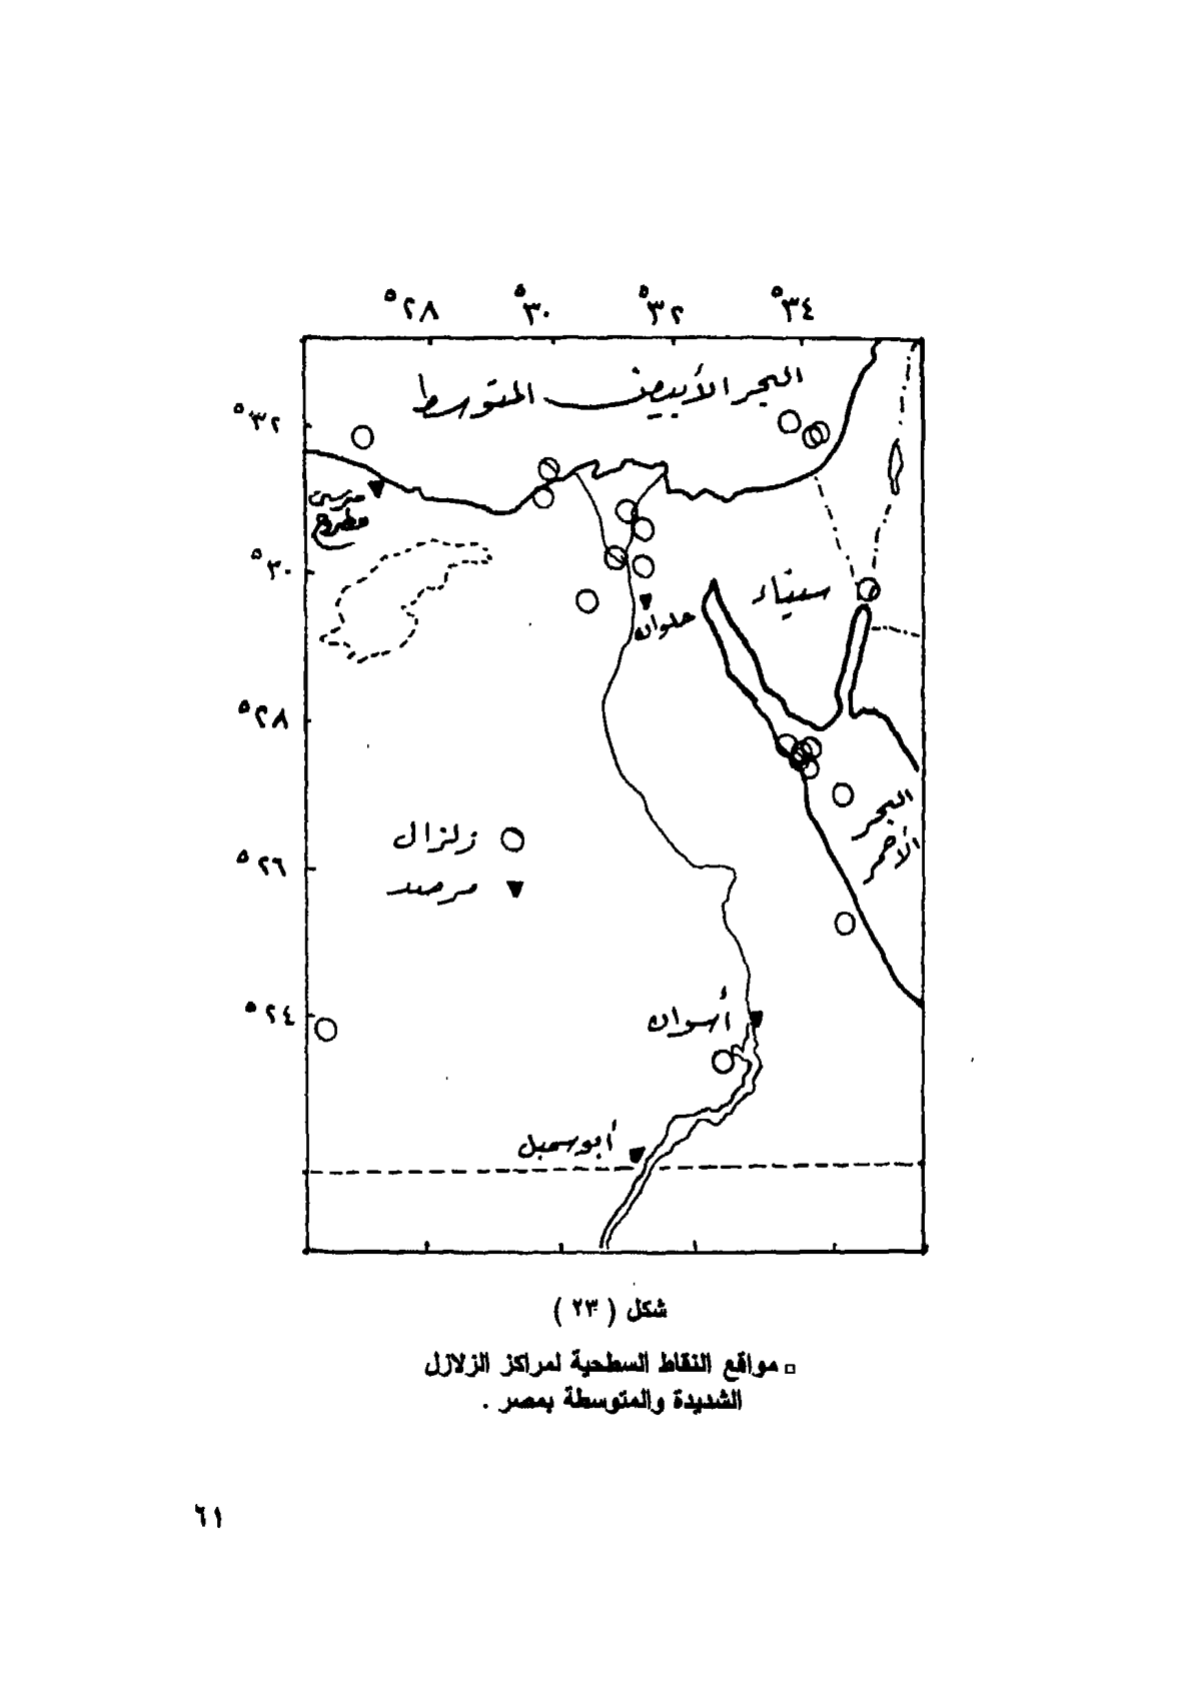 °٢٨ °٣٠ °٣٢ °٣٤
البحر الأبيض المتوسط
°٣٢
مرسى
مطروح
°٣٠
سيناء
حلوان
°٢٨
البحر
الأحمر
زلزال
°٢٦
مرصد
°٢٤
أسوان
أبو سمبل
شكل ( ٢٣ )
مواقع النقاط السطحية لمراكز الزلازل
الشديدة والمتوسطة بمصر .
٦١